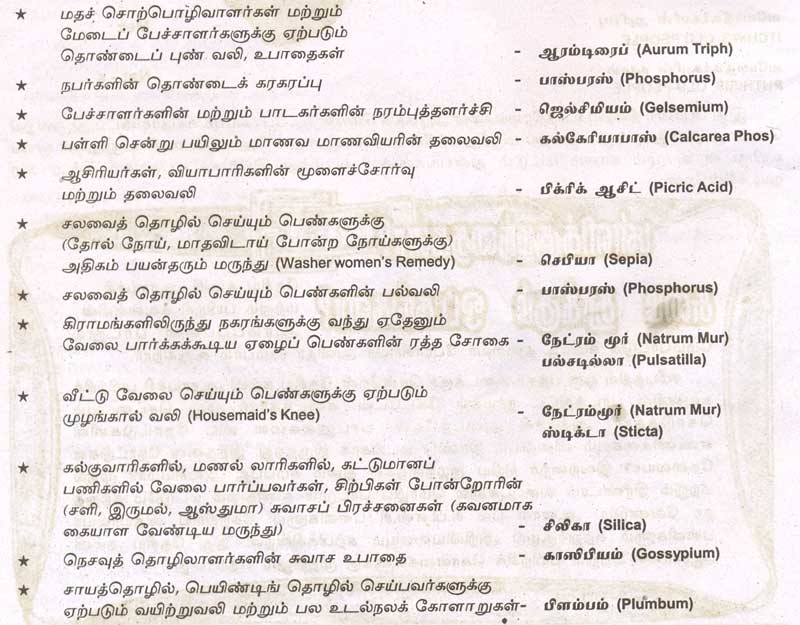 ★ மதச் சொற்பொழிவாளர்கள் மற்றும்
மேடைப் பேச்சாளர்களுக்கு ஏற்படும்
தொண்டைப் புண் வலி, உபாதைகள் - ஆரம்டிரைப் (Aurum Triph)
★ நபர்களின் தொண்டைக் கரகரப்பு - பாஸ்பரஸ் (Phosphorus)
★ பேச்சாளர்களின் மற்றும் பாடகர்களின் நரம்புத்தளர்ச்சி - ஜெல்சிமியம் (Gelsemium)
★ பள்ளி சென்று பயிலும் மாணவ மாணவியரின் தலைவலி - கல்கேரியாபாஸ் (Calcarea Phos)
★ ஆசிரியர்கள், வியாபாரிகளின் மூளைச்சோர்வு
மற்றும் தலைவலி - பிக்ரிக் ஆசிட் (Picric Acid)
★ சலவைத் தொழில் செய்யும் பெண்களுக்கு
(தோல் நோய், மாதவிடாய் போன்ற நோய்களுக்கு)
அதிகம் பயன்தரும் மருந்து (Washer women's Remedy) - செபியா (Sepia)
★ சலவைத் தொழில் செய்யும் பெண்களின் பல்வலி - பாஸ்பரஸ் (Phosphorus)
★ கிராமங்களிலிருந்து நகரங்களுக்கு வந்து ஏதேனும்
வேலை பார்க்கக்கூடிய ஏழைப் பெண்களின் ரத்த சோகை - நேட்ரம் மூர் (Natrum Mur)
பல்சடில்லா (Pulsatilla)
★ வீட்டு வேலை செய்யும் பெண்களுக்கு ஏற்படும்
முழங்கால் வலி (Housemaid's Knee) - நேட்ரம்மூர் (Natrum Mur)
ஸ்டிக்டா (Sticta)
★ கல்குவாரிகளில், மணல் லாரிகளில், கட்டுமானப்
பணிகளில் வேலை பார்ப்பவர்கள், சிற்பிகள் போன்றோரின்
(சளி, இருமல், ஆஸ்துமா) சுவாசப் பிரச்சனைகள் (கவனமாக
கையாள வேண்டிய மருந்து) - சிலிகா (Silica)
★ நெசவுத் தொழிலாளர்களின் சுவாச உபாதை - காஸிபியம் (Gossypium)
★ சாயத்தொழில், பெயிண்டிங் தொழில் செய்பவர்களுக்கு
ஏற்படும் வயிற்றுவலி மற்றும் பல உடல்நலக் கோளாறுகள்- பிளம்பம் (Plumbum)